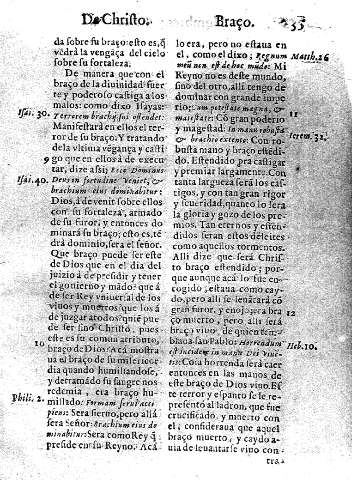 De Christo. Braço. 235
da sobre su braço: esto es, q̃
vẽdrà la vengãça del cielo
sobre su fortaleza.
De manera que con el
braço de la diuinidad fuer
te y poderoso castiga a los
malos: como dixo Isayas:
Isai. 30.
Et terrorem brachij sui ostendet:
Manifestarà en ellos el ter-
ror de su braço. Y tratando
de la vltima vẽgança y casti
9
go que en ellos à de execu-
tar, dize assi; Ecce Dominus
Isai. 40.
Deus in fortitudine veniet, &
brachium eius dominabitur:
Dios, à de venir sobre ellos
con su fortaleza, armado
de su furor, y entonces do
minarà su braço; esto es, tẽ
drà dominio, sera el señor.
Que braço puede ser este
de Dios que en el dia del
juizio à de presidir y tener
el gouierno y mãdo? que à
de ser Rey vniuersal de los
viuos y muertos? que los à
de juzgar a todos? quiẽ pue
de ser sino Christo, pues
este es su comun atributo,
10
braço de Dios? Acà mostra
ua el braço de su misericor-
dia quando humillandose,
y derramãdo su sangre nos
redemia, era braço hu-
Phili. 2.
millado: Formam serui acci
piens: Sera sieruo, pero allà
sera Señor: Brachium eius do-
minabitur: Sera como Rey q̃
preside en su Reyno. Acà
lo era, pero no estaua en
el, como el dixo; Regnum
Matth. 26
meũ non est de hoc mũdo: Mi
Reyno no es deste mundo,
sino del otro, allí tengo de
dominar con grande impe
rio; Cum potestate magna, &
11
maiestate: Cõ gran poderio
y magestad: In manu robusta
Ierem. 32.
& brachio extento: Con ro-
busta mano y braço estẽdi-
do. Estendido para castigar
y premiar largamente. Con
tanta largueza serà los cas-
tigos, y con tan gran rigor
y seueridad, quanto lo sera
la gloria y gozo de los pre-
mios. Tan eternos y estẽn-
didos seran estos deleites
como aquellos tormentos.
Alli dize que serà Chris-
to braço estendido; por-
que aunque acà lo fue en-
cogido, estaua como cay-
do, pero alli se leuãtarà cõ
12
gran furor, y enojo: era bra
ço muerto, pero alli serà
braço viuo, de quien tem-
blaua san Pablo: Horrendum
Heb. 10.
est incidere in manu Dei viuẽ-
tis: Cosa horrenda serà caer
entonces en las manos de
este braço de Dios viuo. Es
te terror y espanto se le re-
presentò al ladron, que fue
crucificado, y muerto con
el, consideraua que aquel
braço muerto, y caydo a-
uia de leuantarse viuo con-
tra